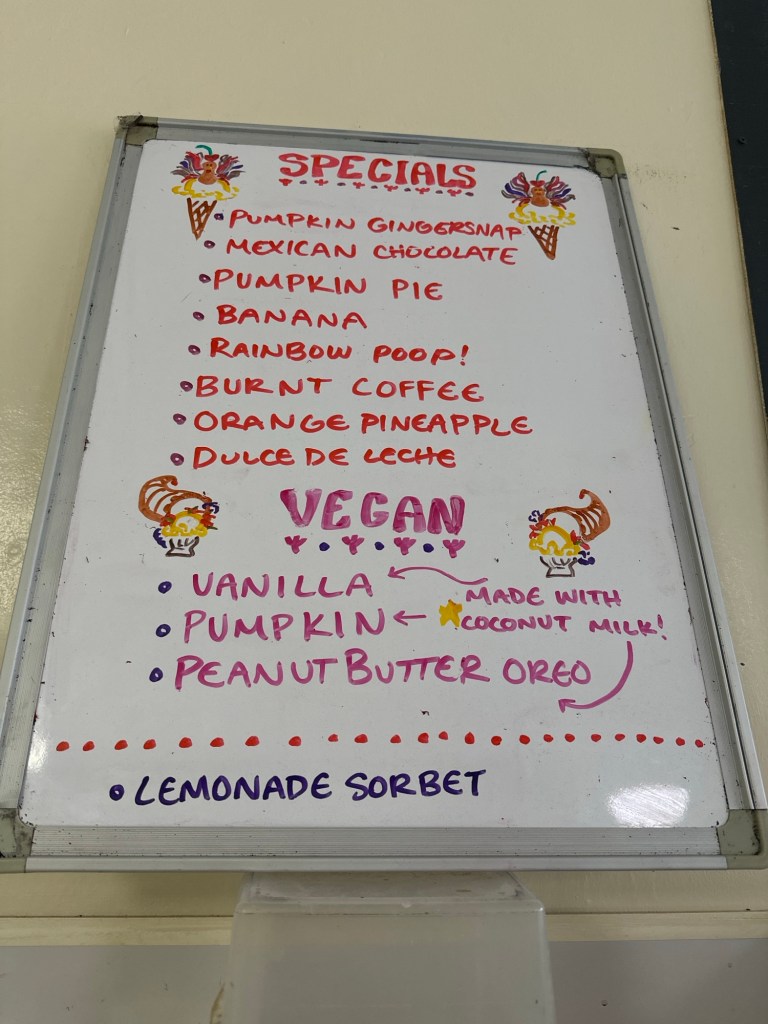 SPECIALS
• PUMPKIN GINGERSNAP
• MEXICAN CHOCOLATE
• PUMPKIN PIE
• BANANA
• RAINBOW POOP!
• BURNT COFFEE
• ORANGE PINEAPPLE
• DULCE DE LECHE
VEGAN
• VANILLA
• PUMPKIN
• PEANUT BUTTER OREO
MADE WITH
COCONUT MILK!
• LEMONADE SORBET